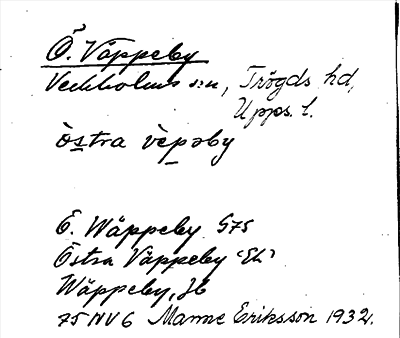 Ö. Väppeby
Veckholms sn, Trögds hd,
Upps. l.
östra vèpəby
Ö. Wäppeby G75
Östra Väppeby 'Ek'
Wäppeby, Jb
75 NV6 Manne Eriksson 1932.